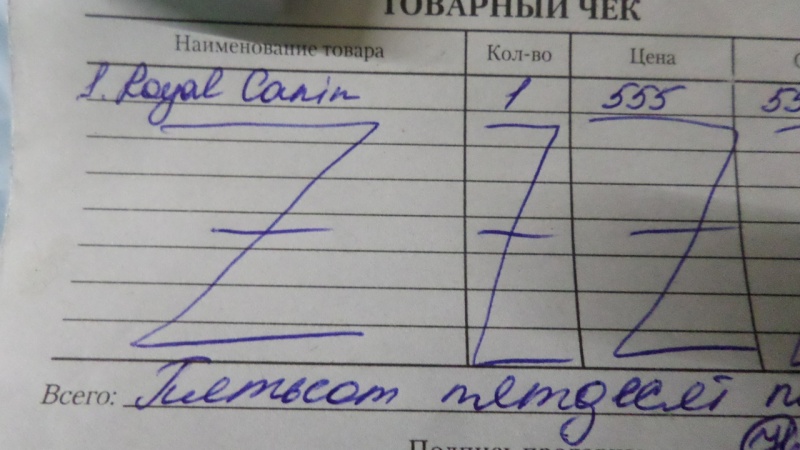 ТОВАРНЫЙ ЧЕК
Наименование товара Кол-во Цена
1. Royal Canin 1 555 55
Всего: Пятьсот пятдесят п
Подпись